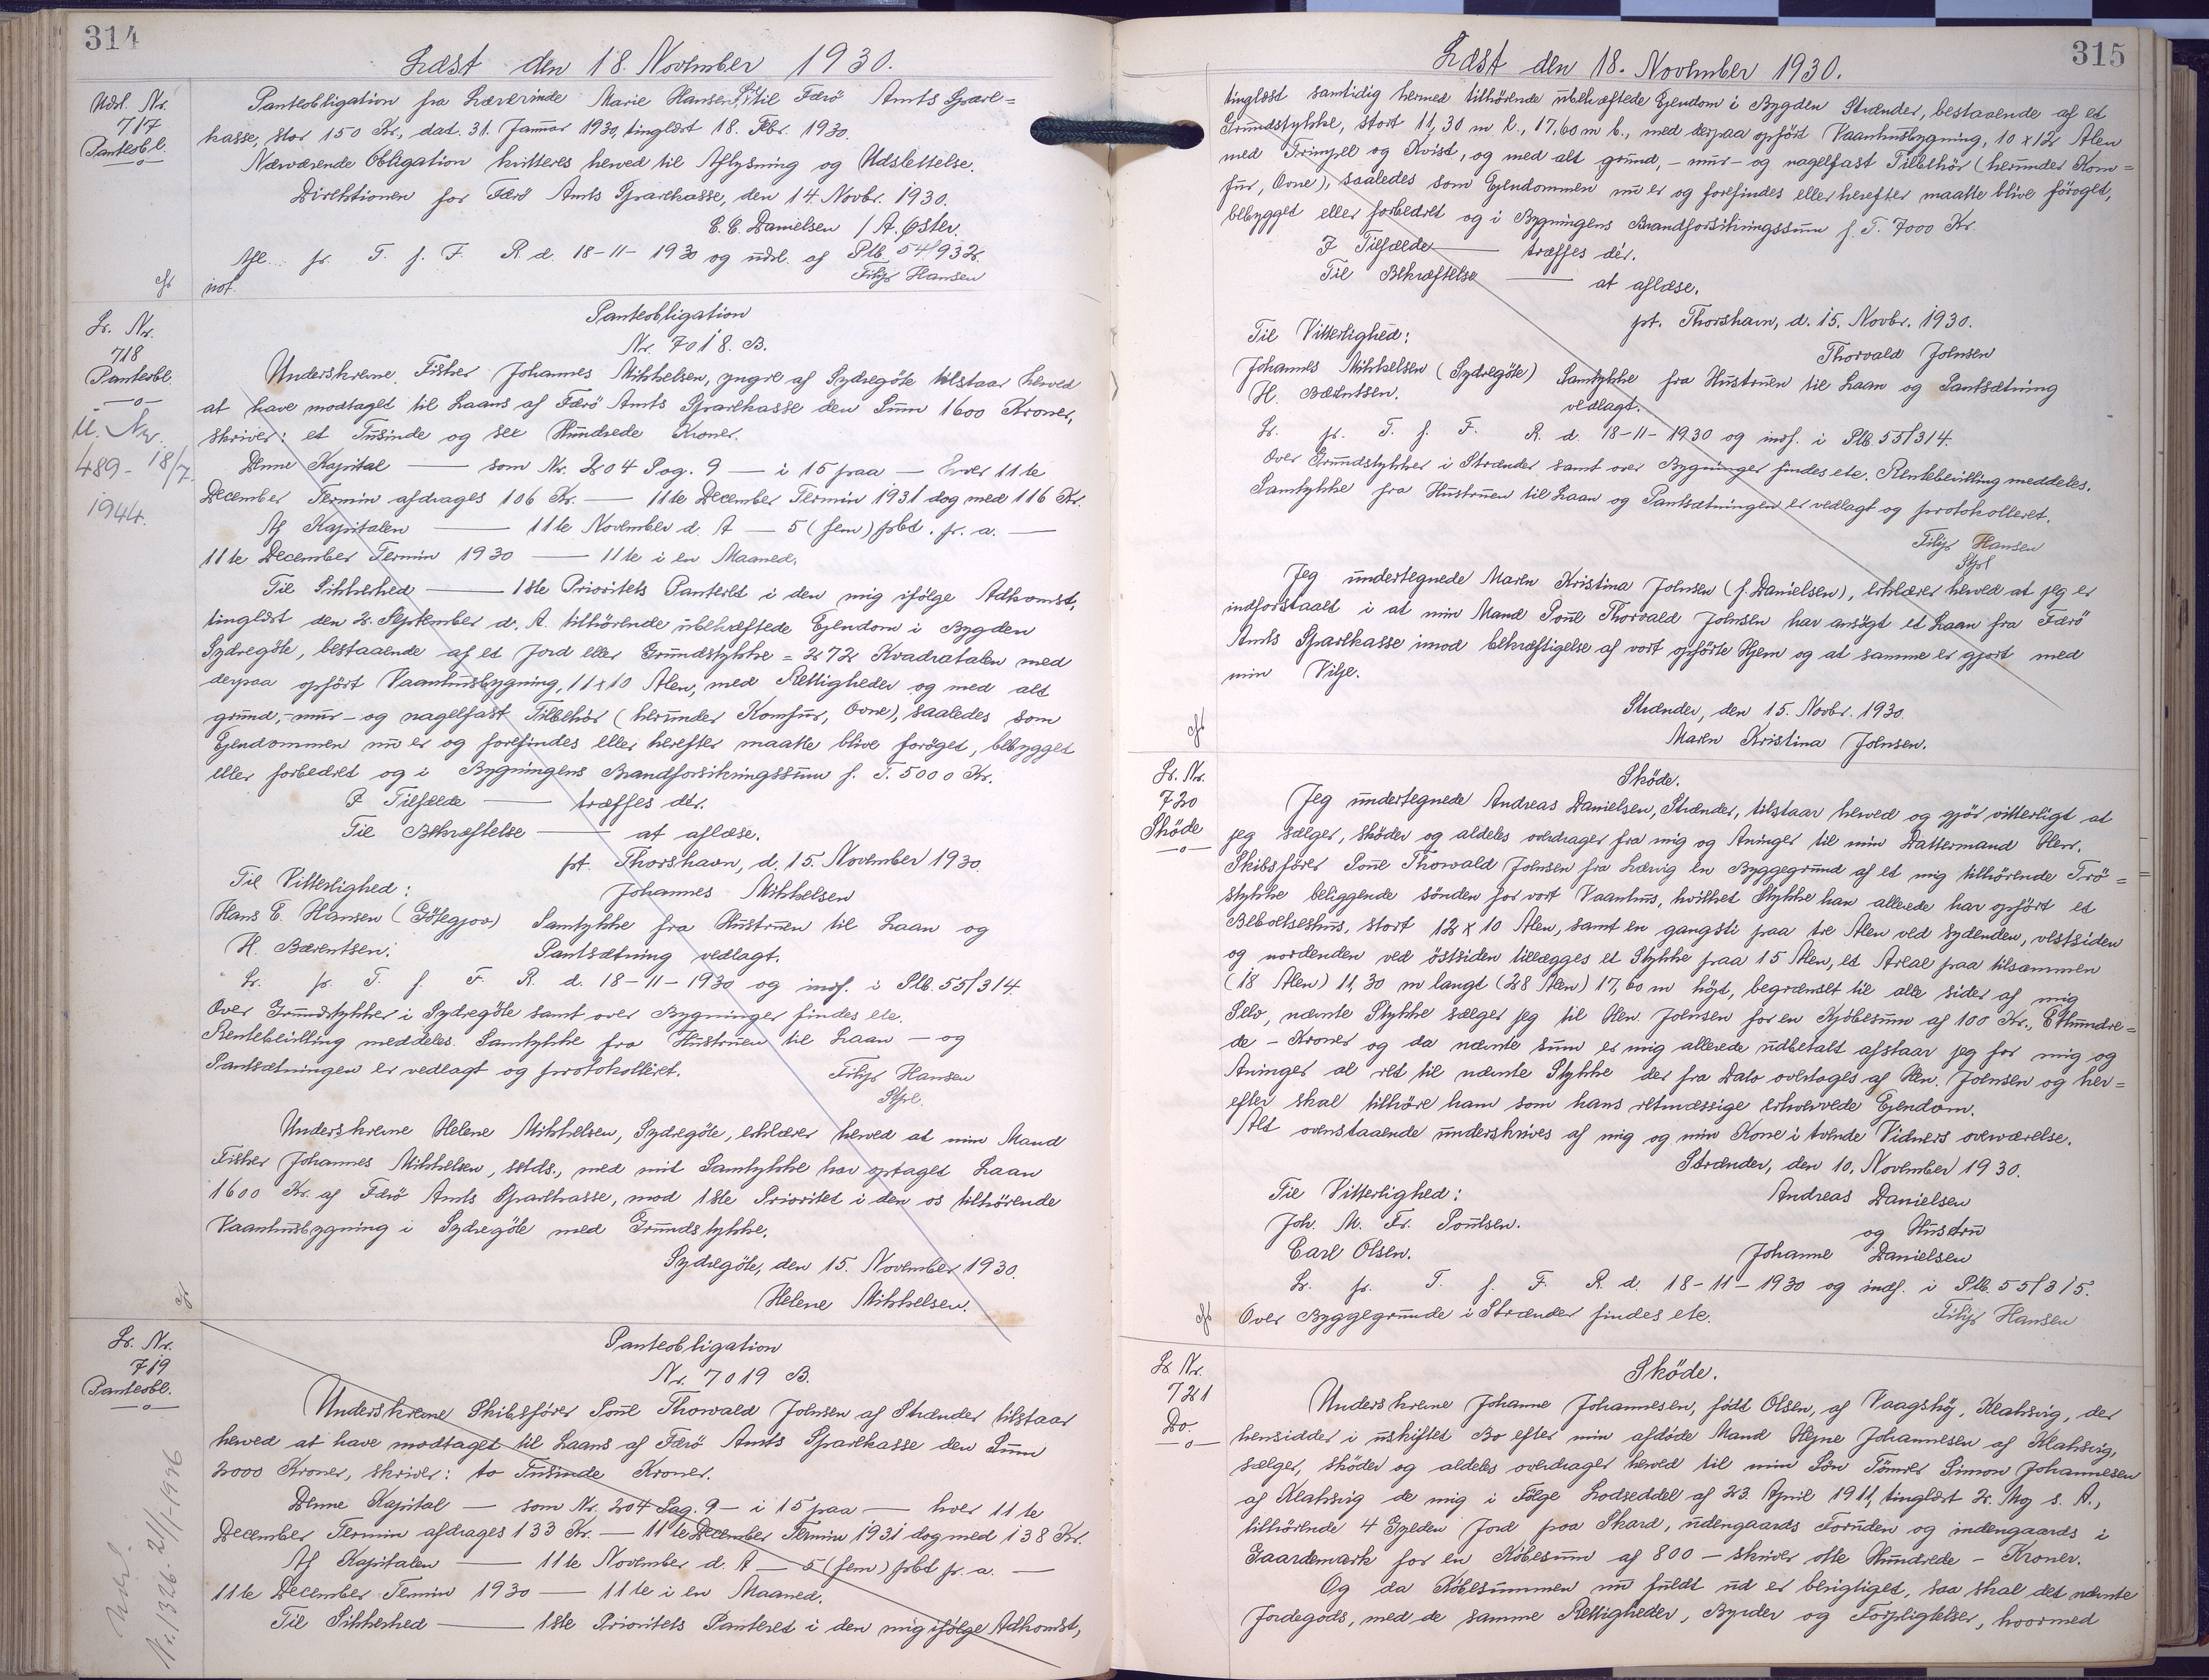 314
Læst den 18. November 1930.
Udsl. Nr.
717
Panteobl.
Panteobligation fra Lærerinde Marie Hansen til Færö Amts Spare=
kasse, stor 150 Kr., dat. 31. Januar 1930, tinglæst 18. Febr. 1930.
Nærværende Obligation kvitteres herved til Aflysning og Udslettelse.
Direktionen for Færö Amts Sparekasse, den 14. Novbr. 1930.
C. C. Danielsen / A. Øster.
Afl. pr. T. f. F. R. d. 18-11-1930 og udsl. af Ptb. 54/932.
not.
Filip Hansen
Lr. Nr.
718
Panteobl.
U. Nr.
489 - 18/7
1944.
Panteobligation
Nr. 7018. B.
Underskrevne Fisker Johannes Mikkelsen, yngre af Sydregöte tilstaar herved
at have modtaget til Laans af Færö Amts Sparekasse den Sum 1600 Kroner,
skriver: et Tusinde og sex Hundrede Kroner.
Denne Kapital — som Nr. 204 Pag. 9 — i 15 paa — hver 11te
December Termin afdrages 106 Kr. — 11te December Termin 1931 dog med 116 Kr.
Af Kapitalen — 11te November d. A — 5 (fem) pbt. pr. a. —
11te December Termin 1930 — 11te i en Maaned.
Til Sikkerhed — 1ste Prioritets Panteret i den mig ifölge Adkomst,
tinglæst den 2. September d. A. tilhörende ubehæftede Ejendom i Bygden
Sydregöte, bestaaende af et Jord eller Grundstykke = 272 Kvadratalen med
derpaa opfört Vaanhusbygning, 11 x 10 Alen, med Rettigheder og med alt
grund,- mur- og nagelfast Tilbehör (herunder Komfur, Ovne), saaledes som
Ejendommen nu er og forefindes eller herefter maatte blive foröget, bebygget
eller forbedret og i Bygningens Brandforsikringssum f. T. 5000 Kr.
I Tilfælde — træffes dér.
Til Bekræftelse — at aflæse.
pt. Thorshavn, d. 15. November 1930.
Til Vitterlighed:
Johannes Mikkelsen
Hans E. Hansen (Götegjov) Samtykke fra Hustruen til Laan og
H. Bærentsen. Pantsætning vedlagt.
Lr. pr. T. f. F. R. d. 18-11-1930 og indf. i Ptb. 55/314.
Over Grundstykker i Sydregöte samt over Bygninger findes etc.
Rentebevilling meddeles. Samtykke fra Hustruen til Laan — og
Pantsætningen er vedlagt og protokolleret.
Filip Hansen
Underskrevne Helene Mikkelsen, Sydregöte, erklærer herved at min Mand
Fisker Johannes Mikkelsen, sstds., med mit Samtykke har optaget Laan
1600 Kr. af Færö Amts Sparekasse, mod 1ste Prioritet i den os tilhörende
Vaanhusbygning i Sydregöte med Grundstykke.
Sydregöte, den 15. November 1930.
Helene Mikkelsen.
Lr. Nr.
719
Panteobl.
Udsl.
Nr. 1326. 21/1-1936
Panteobligation
Nr. 7019 B.
Underskrevne Skibsförer Poul Thorvald Joensen af Strænder tilstaar
herved at have modtaget til Laans af Færö Amts Sparekasse den Sum
2000 Kroner, skriver: to Tusinde Kroner.
Denne Kapital — som Nr. 204 Pag. 9 — i 15 paa — hver 11te
December Termin afdrages 133 Kr. — 11te December Termin 1931 dog med 138 Kr.
Af Kapitalen — 11te November d. A — 5 (fem) pbt pr. a. —
11te December Termin 1930 — 11te i en Maaned.
Til Sikkerhed — 1ste Prioritets Panteret i den mig ifölge Adkomst,
315
Læst den 18. November 1930.
tinglæst samtidig hermed tilhörende ubehæftede Ejendom i Bygden Strænder, bestaaende af et
Grundstykke, stort 11,30 m l., 17,60 m b., med derpaa opfört Vaanhusbygning, 10 x 12 Alen
med Trimpel og Kvist, og med alt grund,- mur- og nagelfast Tilbehör (herunder Kom=
fur, Ovne), saaledes som Ejendommen nu er og forefindes eller herefter maatte blive föröget,
bebygget eller forbedret og i Bygningens Brandforsikringssum f. T. 7000 Kr.
I Tilfælde — træffes dér.
Til Bekræftelse — at aflæse.
pt. Thorshavn, d. 15. Novbr. 1930.
Til Vitterlighed:
Thorvald Joensen
Johannes Mikkelsen (Sydregöte) Samtykke fra Hustruen til Laan og Pantsætning
H. Bærentsen. vedlagt.
Lr. pr. T. f. F. R. d. 18-11-1930 og indf. i Ptb. 55/314.
Over Grundstykker i Strænder samt over Bygninger findes etc. Rentebevilling meddeles.
Samtykke fra Hustruen til Laan og Pantsætningen er vedlagt og protokolleret.
Filip Hansen
Jeg undertegnede Maren Kristina Joensen (f. Danielsen), erklærer herved at jeg er
indforstaaet i at min Mand Poul Thorvald Joensen har ansögt et Laan fra Færö
Amts Sparekasse imod bekræftigelse af vort opförte Hjem og at samme er gjort med
min Vilje.
Strænder, den 15. Novbr. 1930.
Maren Kristina Joensen.
Lr. Nr.
720
Sköde
Sköde.
Jeg undertegnede Andreas Danielsen, Strænder, tilstaar herved og gjör vitterligt at
jeg sælger, sköder og aldeles overdrager fra mig og Arvinger til min Dattermand Herr.
Skibsförer Poul Thorvald Joensen fra Lærvig en Byggegrund af et mig tilhörende Trö=
stykke beliggende sönden for vort Vaanhus, hvilket Stykke han allerede har opfört et
Beboelseshus, stort 12 x 10 Alen, samt en gangsti paa tre Alen ved sydenden, vestsiden
og nordenden ved östsiden tillægges et Stykke paa 15 Alen, et Areal paa tilsammen
(18 Alen) 11,30 m langt (28 Alen) 17,60 m höjt, begrænset til alle sider af mig
Selv, nævnte Stykke sælger jeg til Hr. Joensen for en Kjöbesum af 100 Kr., Ethundre=
de - Kroner og da nævnte sum er mig allerede udbetalt afstaar jeg for mig og
Arvinger al ret til nævnte Stykke der fra Dato overtages af Hr. Joensen og her=
efter skal tilhöre ham som hans retmæssige erhvervede Ejendom.
Alt ovenstaaende underskrives af mig og min Kone i tvende Vidners overværelse.
Strænder, den 10. November 1930.
Til Vitterlighed:
Andreas Danielsen
Joh. M. Fr. Poulsen.
og Hustru
Carl Olsen.
Johanne Danielsen
Lr. pr. T. f. F. R. d. 18-11-1930 og indf. i Ptb. 55/315.
Over Byggegrunde i Strænder findes etc.
Filip Hansen
Lr. Nr.
721
Do.
Sköde.
Underskrevne Johanne Johannesen, född Olsen, af Vaagshöj, Klaksvig, der
hensidder i uskiftet Bo efter min afdöde Mand Hejne Johannesen af Klaksvig,
sælger, sköder og aldeles overdrager herved til min Sön Tömrer Simon Johannesen
af Klaksvig de mig i Fölge Lodseddel af 23. April 1911, tinglæst 2. Maj s. A.,
tilhörende 4 Gylden Jord paa Skard, udengaards Foruden og indengaards i
Gaardemark for en Köbesum af 800 - skriver otte Hundrede - Kroner.
Og da Köbesummen nu fuldt ud er berigtiget, saa skal det nævnte
Jordegods, med de samme Rettigheder, Byrder og Forpligtelser, hvormed